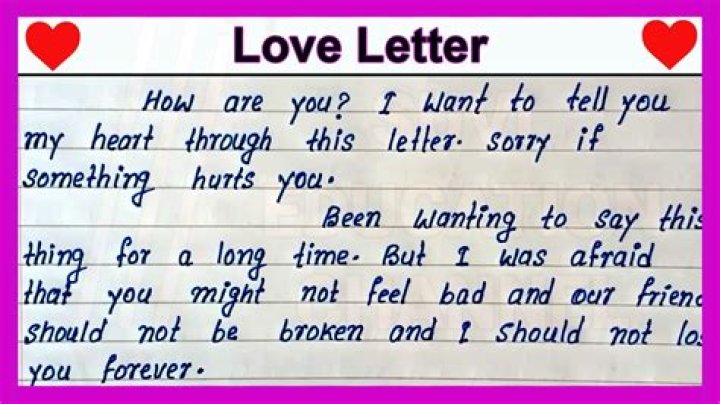 Love Letter
How are you? I want to tell you
my heart through this letter. sorry if
something hurts you.
Been wanting to say this
thing for a long time. But I was afraid
that you might not feel bad and our friend
should not be broken and I should not
you forever.